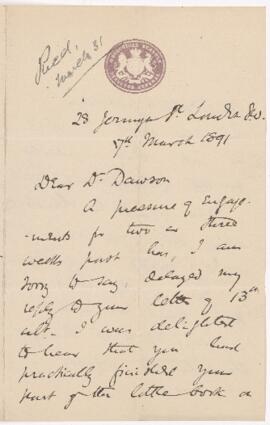 Recd.
March 31
28 Jermyn St. London S.W.
7th March 1891
Dear Dr. Dawson
A pressure of engage-
ments for two or three
weeks past has, I am
sorry to say, delayed my
reply to your letter of 13th
ult. I was delighted
to hear that you had
practically finished your
part of the little book on